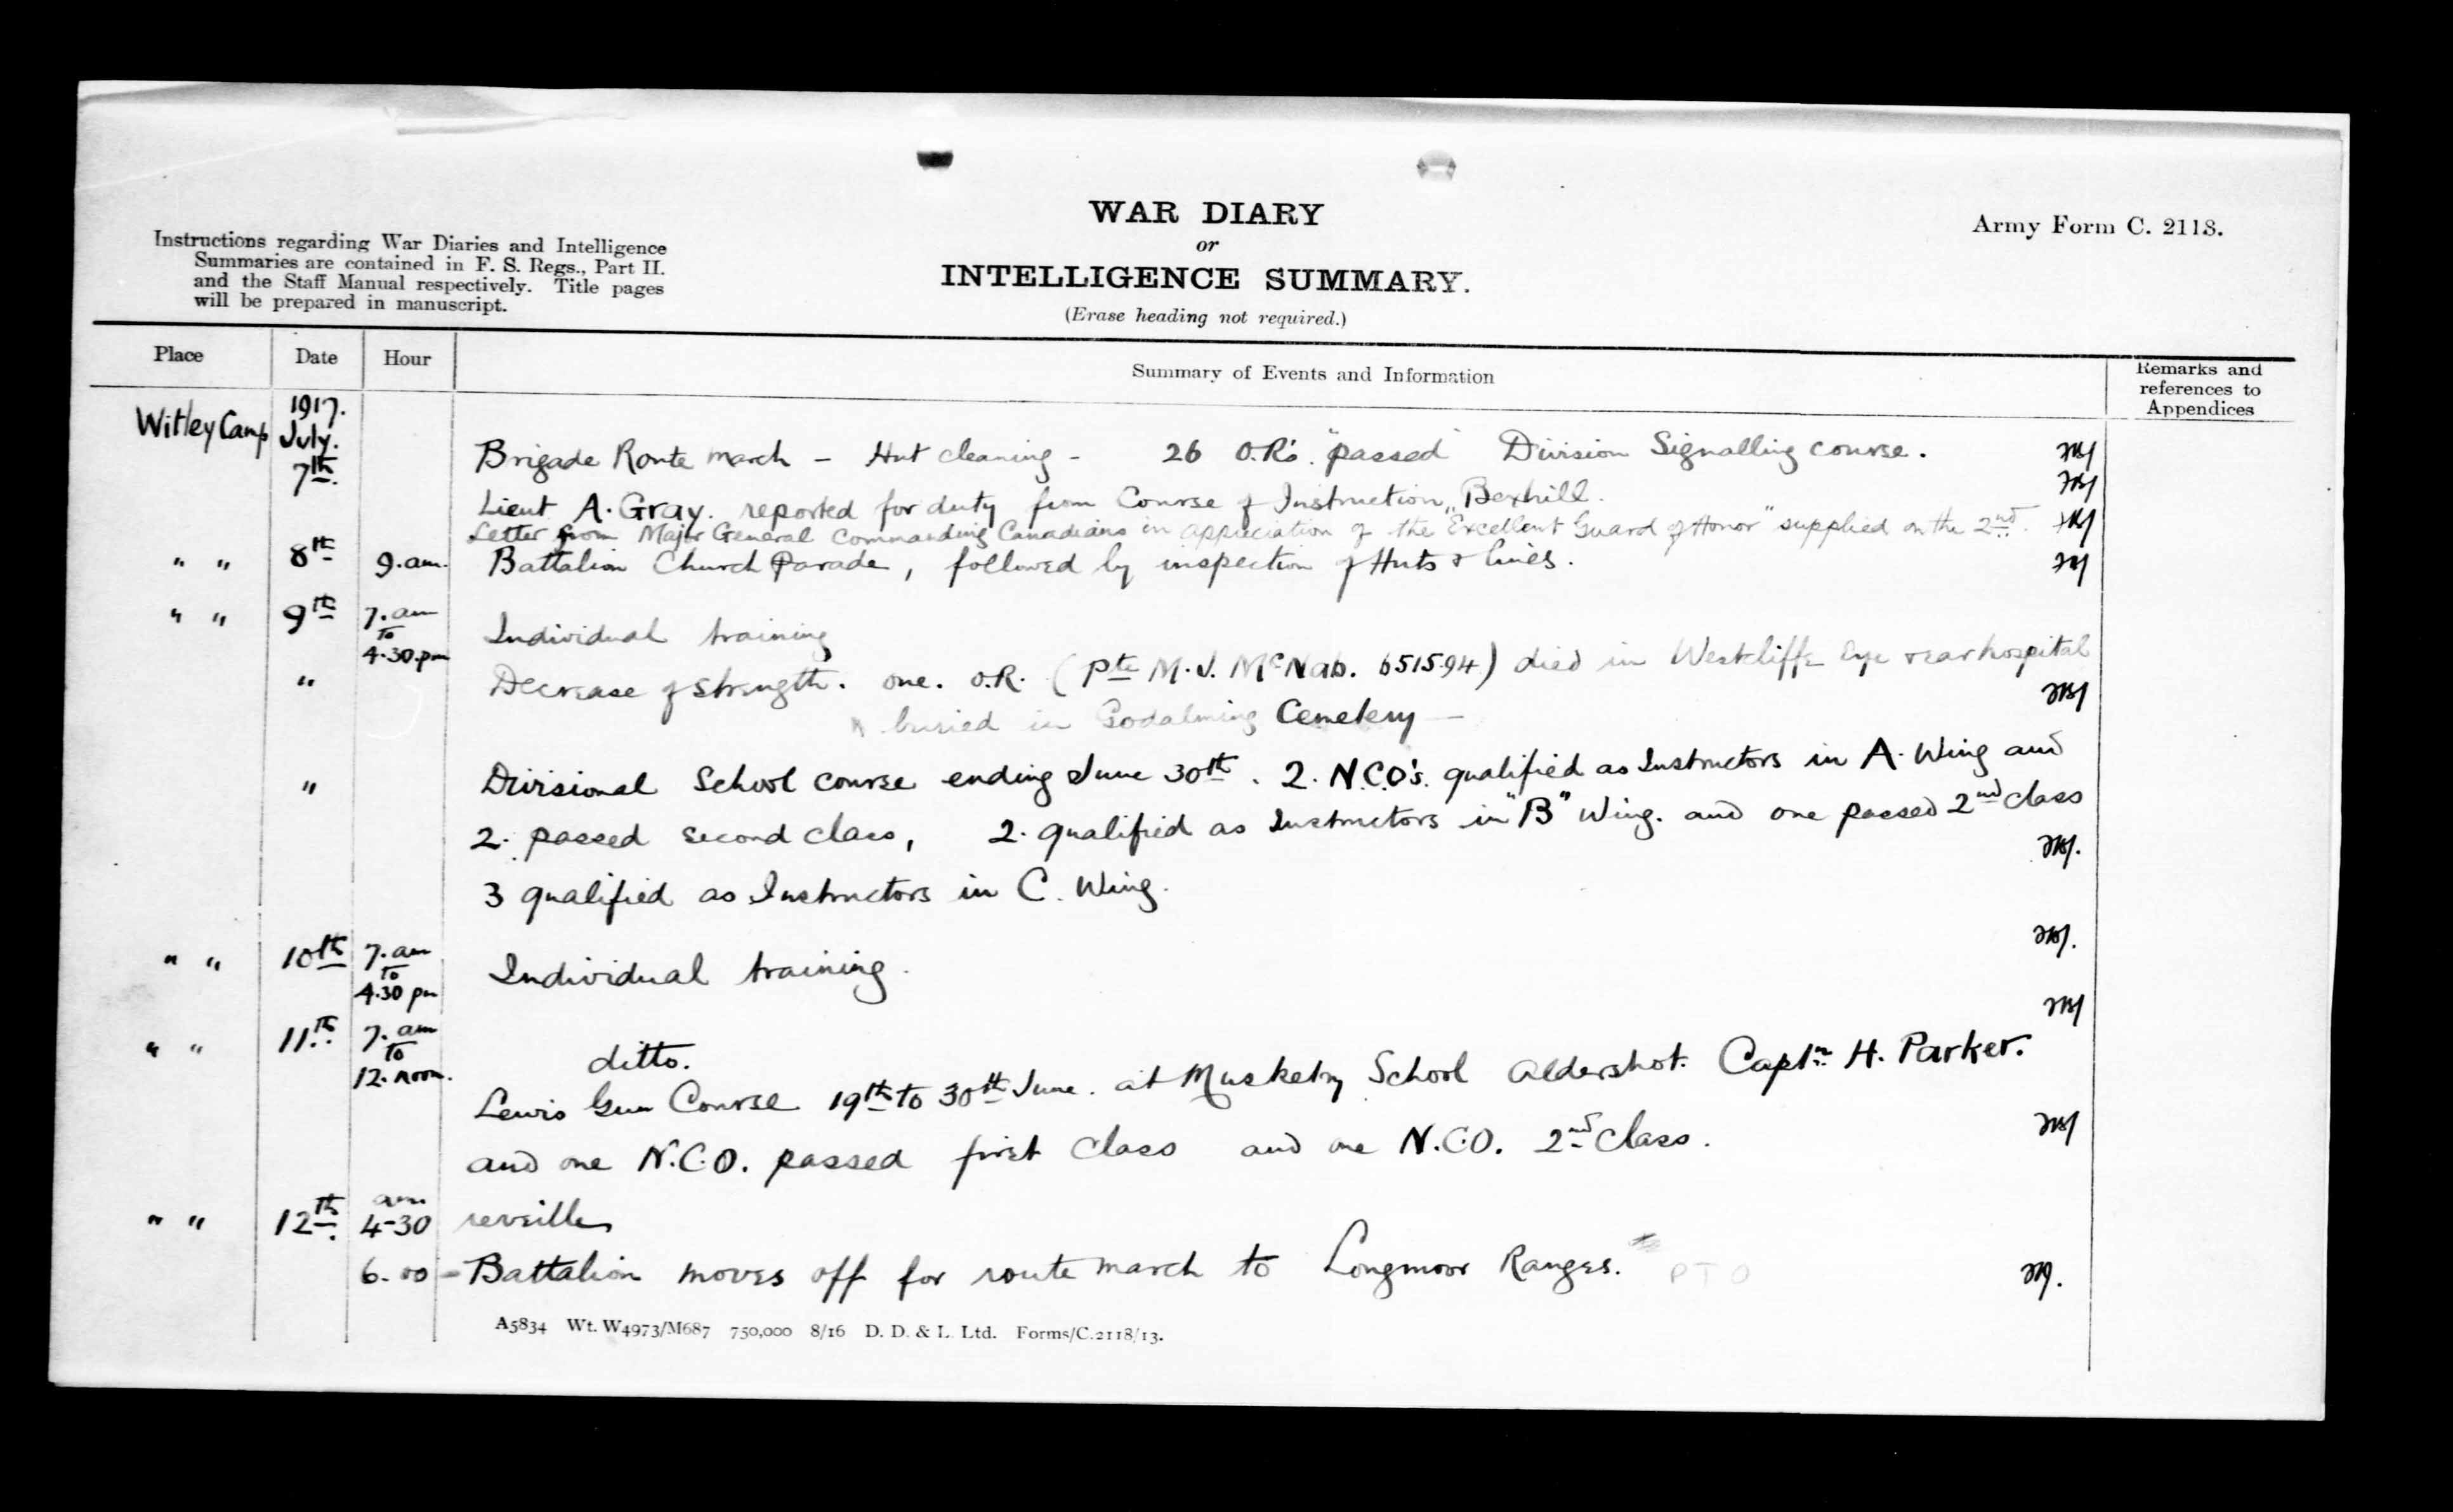 WAR DIARY
or
INTELLIGENCE SUMMARY.
(Erase heading not required.)
Army Form C. 2118.
Instructions regarding War Diaries and Intelligence
Summaries are contained in F. S. Regs., Part II.
and the Staff Manual respectively. Title pages
will be prepared in manuscript.
Place Date Hour Summary of Events and Information Remarks and references to Appendices
Witley Camp 1917. July.
7th. Brigade Route march - Hut cleaning - 26 O.R's. "passed" Division Signalling course.
Lieut A. Gray. reported for duty from Course of Instruction, Bexhill.
Letter from Major General Commanding Canadians in appreciation of the "Excellent Guard of Honor" supplied on the 2nd.
" " 8th 9. am. Battalion Church Parade, followed by inspection of Huts & lines.
" " 9th 7. am to 4.30. pm Individual training
" Decrease of strength. one. O.R. (Pte M. J. McNab. 651594) died in Westcliffe Eye & ear hospital
buried in Godalming Cemetery —
" Divisional School course ending June 30th. 2. N.C.O's. qualified as Instructors in A. Wing and
2. passed second class, 2. qualified as Instructors in "B" Wing. and one passed 2nd class
3 qualified as Instructors in C. Wing.
" " 10th 7. am to 4.30 pm Individual training.
" " 11th 7. am to 12. noon. ditto.
Lewis Gun Course 19th to 30th June. at Musketry School Aldershot. Captn H. Parker.
and one N.C.O. passed first class and one N.C.O. 2nd Class.
" " 12th. am 4-30 reveille
6.00 - Battalion moves off for route march to Longmoor Ranges. PTO
A5834 Wt. W4973/M687 750,000 8/16 D. D. & L. Ltd. Forms/C.2118/13.